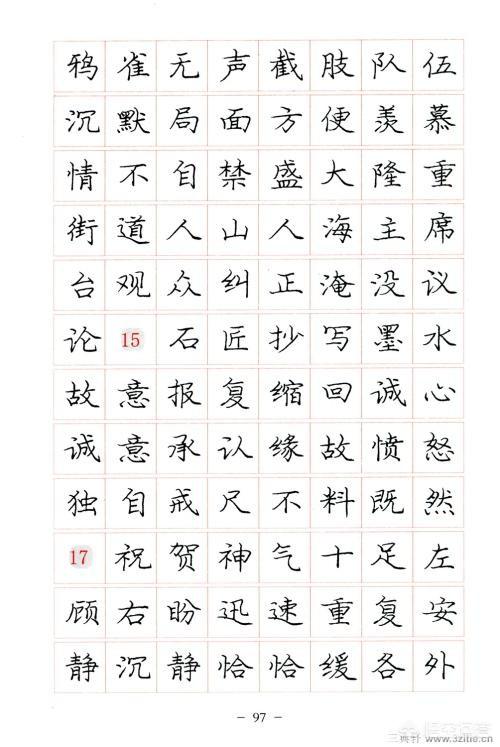 鸦雀无声截肢队伍
沉默局面方便羡慕
情不自禁盛大隆重
街道人山人海主席
台观众纠正淹没议
论 15 石匠抄写墨水
故意报复缩回诚心
诚意承认缘故愤怒
独自戒尺不料既然
17 祝贺神气十足左
顾右盼迅速重复安
静沉静恰恰缓各外
- 97 -
三典轩 www.3zitie.cn